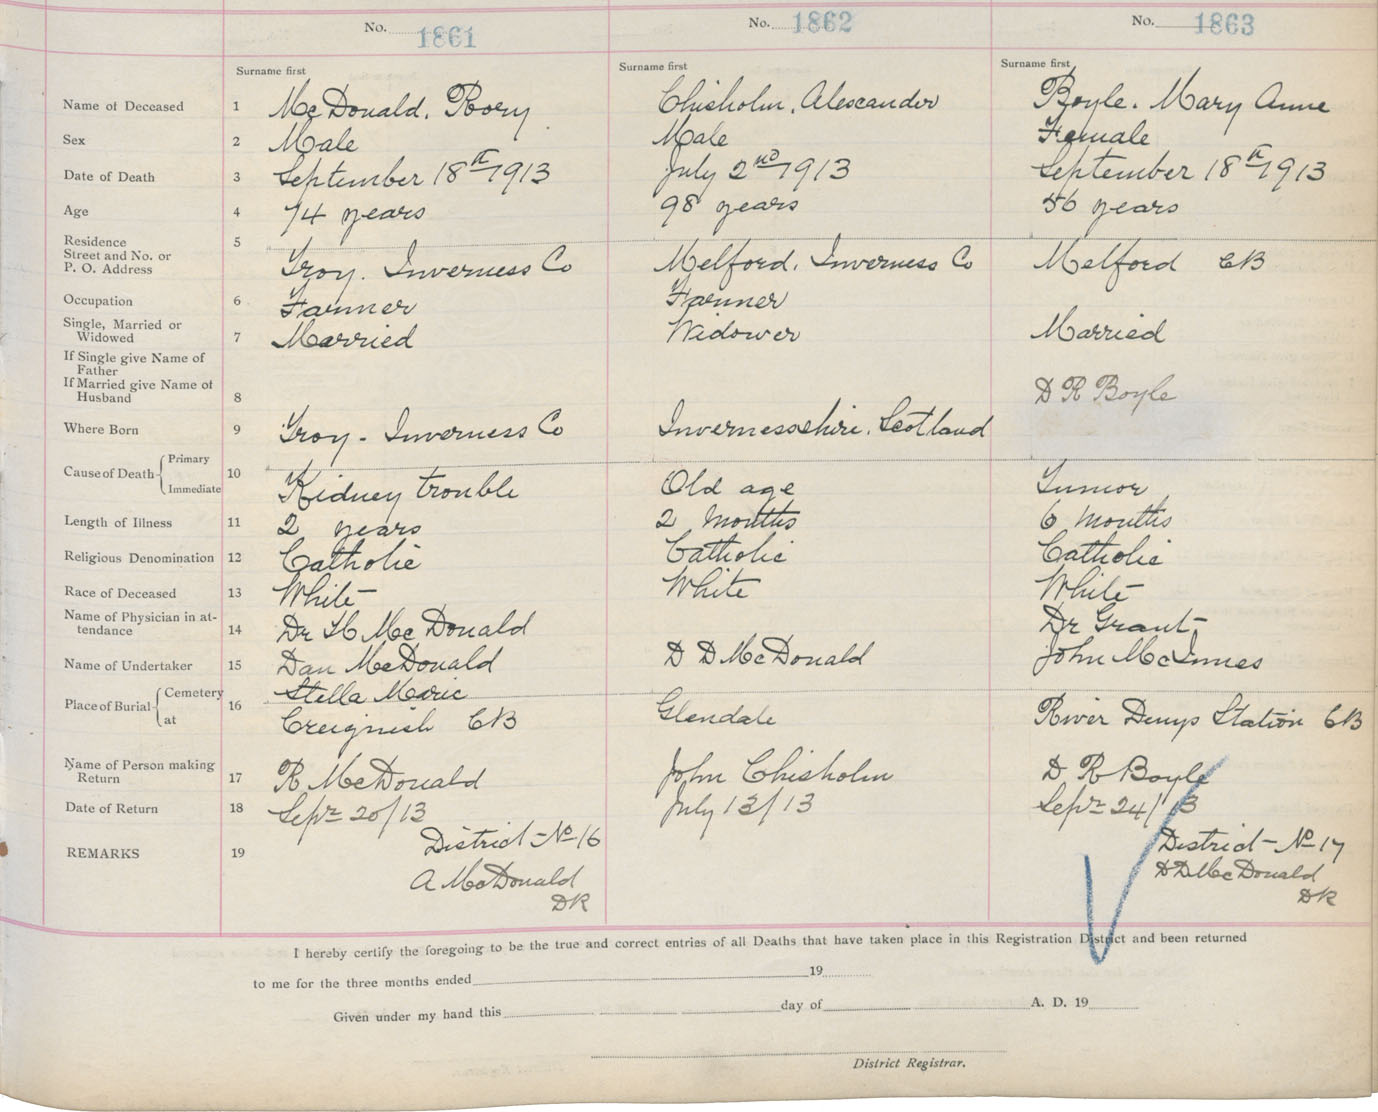 No. 1861 No. 1862 No. 1863
Surname first Surname first Surname first
Name of Deceased 1 McDonald, Rory Chisholm, Alexander Boyle, Mary Anne
Sex 2 Male Male Female
Date of Death 3 September 18th 1913 July 2nd 1913 September 18th 1913
Age 4 74 years 98 years 56 years
Residence 5
Street and No. or
P. O. Address Troy, Inverness Co Melford, Inverness Co Melford CB
Occupation 6 Farmer Farmer
Single, Married or
Widowed 7 Married Widower Married
If Single give Name of
Father
If Married give Name of
Husband 8 D R Boyle
Where Born 9 Troy - Inverness Co Invernessshire, Scotland
Cause of Death Primary 10
Immediate Kidney trouble Old age Tumor
Length of Illness 11 2 years 2 months 6 months
Religious Denomination 12 Catholic Catholic Catholic
Race of Deceased 13 White White White
Name of Physician in at-
tendance 14 Dr H McDonald Dr Grant
Name of Undertaker 15 Dan McDonald D D McDonald John McInnes
Place of Burial Cemetery 16 Stella Maric
at Creignish CB Glendale River Denys Station CB
Name of Person making
Return 17 R McDonald John Chisholm D R Boyle
Date of Return 18 Sepr 20/13 July 13/13 Sepr 24/13
REMARKS 19 District No 16 District No 17
A McDonald D D McDonald
DR DR
I hereby certify the foregoing to be the true and correct entries of all Deaths that have taken place in this Registration District and been returned
to me for the three months ended 19
Given under my hand this day of A. D. 19
District Registrar.